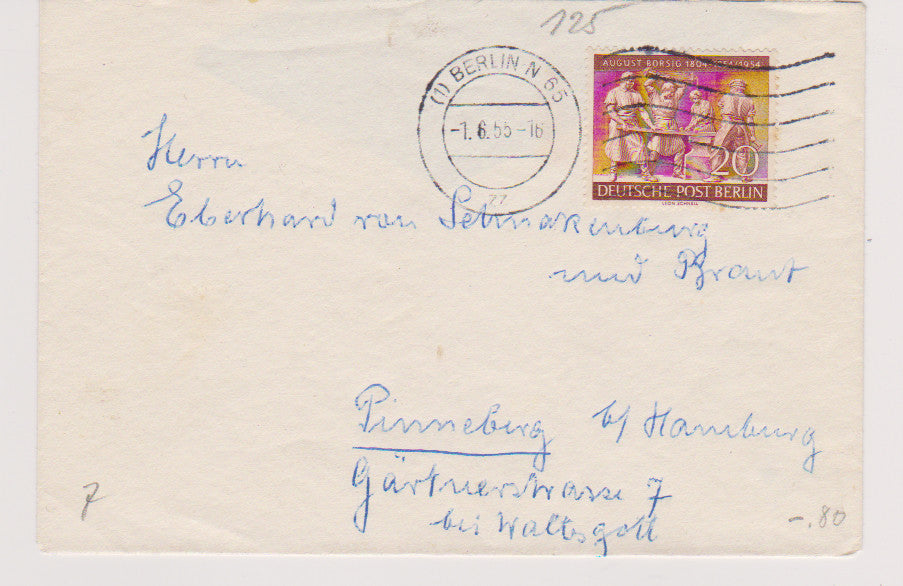 125
(1) BERLIN N 65
-1. 6. 55-16
zz
AUGUST BORSIG 1804-1854/1954
20
DEUTSCHE POST BERLIN
LEON SCHNELL
Herrn
Eberhard von Schnakenburg
und Braut
Pinneberg b/ Hamburg
Gärtnerstrasse 7
bei Waltsgott
7
-.80